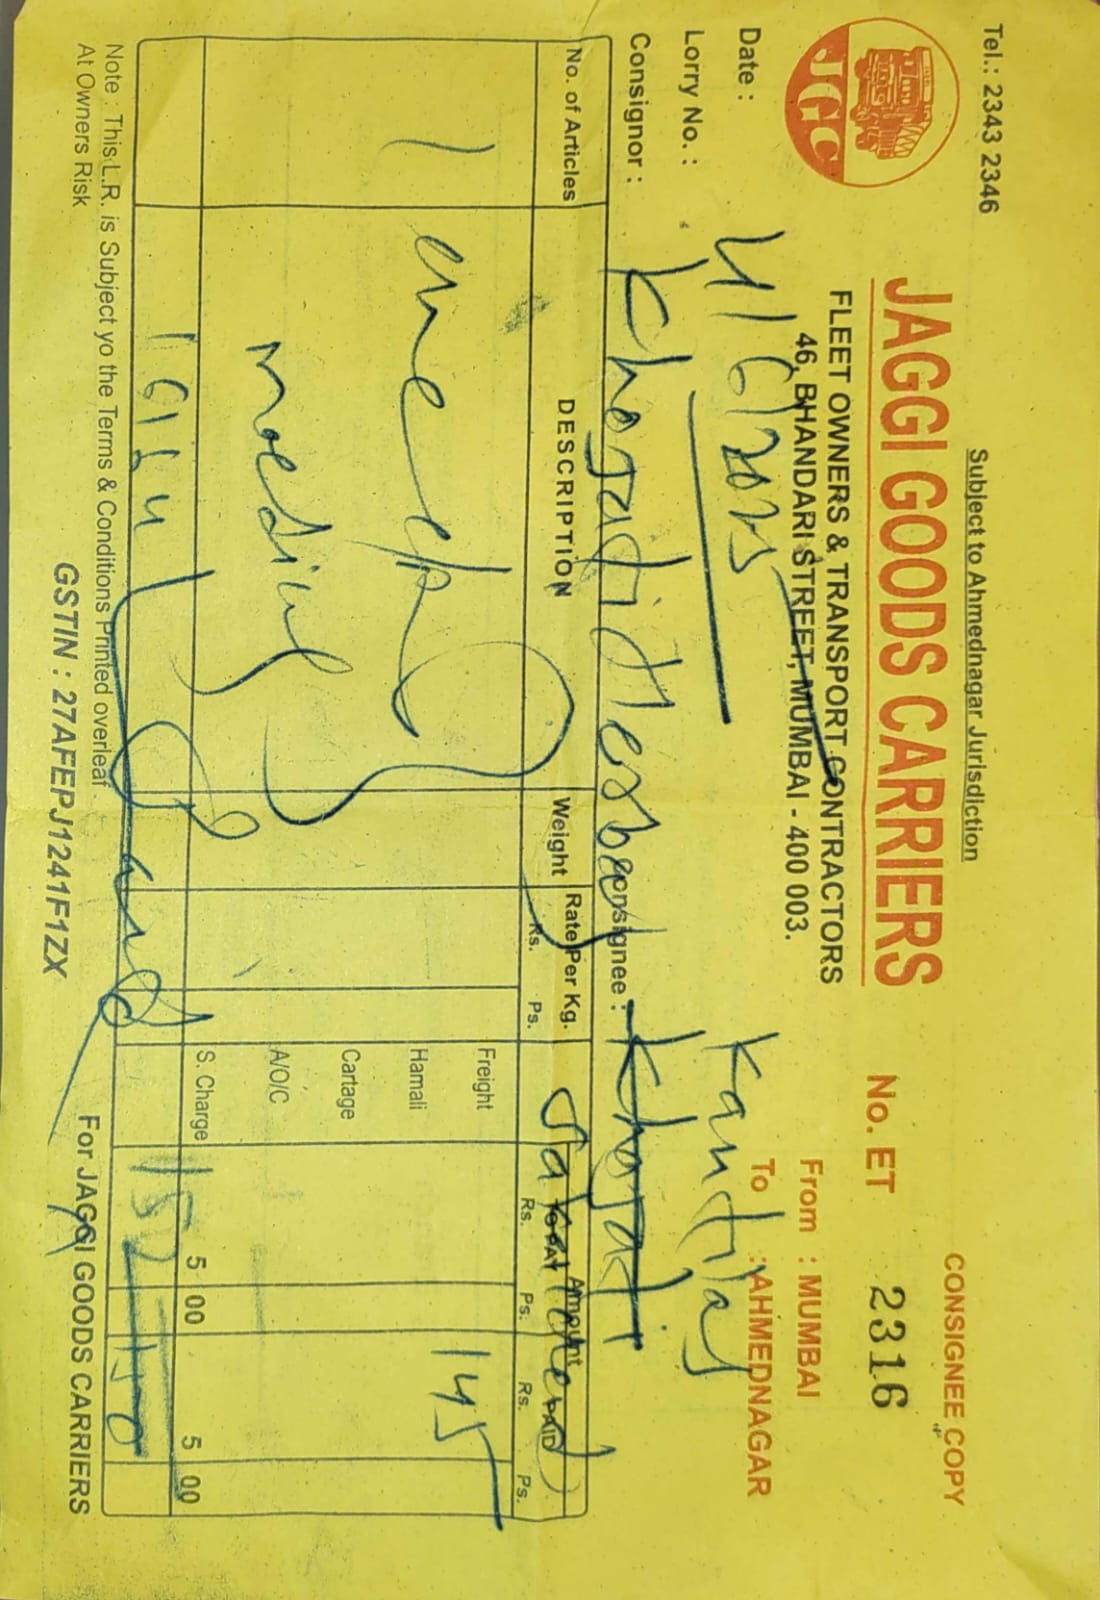 Subject to Ahmednagar Jurisdiction
Tel.: 2343 2346
CONSIGNEE COPY
JGC
JAGGI GOODS CARRIERS
No. ET 2316
FLEET OWNERS & TRANSPORT CONTRACTORS
46, BHANDARI STREET, MUMBAI - 400 003.
From : MUMBAI
To : AHMEDNAGAR
Date :
Lorry No. :
Kantilal
Consignor :
Consignee : Khojati
No. of Articles
DESCRIPTION
Weight
Rate Per Kg.
Rs. Ps.
Amount
TO PAY
PAID
Rs. Ps. Rs. Ps.
Freight 145
Hamali
Cartage
A/O/C
S. Charge 5 00 5 00
medical
Note : This L.R. is Subject yo the Terms & Conditions Printed overleaf.
At Owners Risk
For JAGGI GOODS CARRIERS
GSTIN : 27AFEPJ1241F1ZX